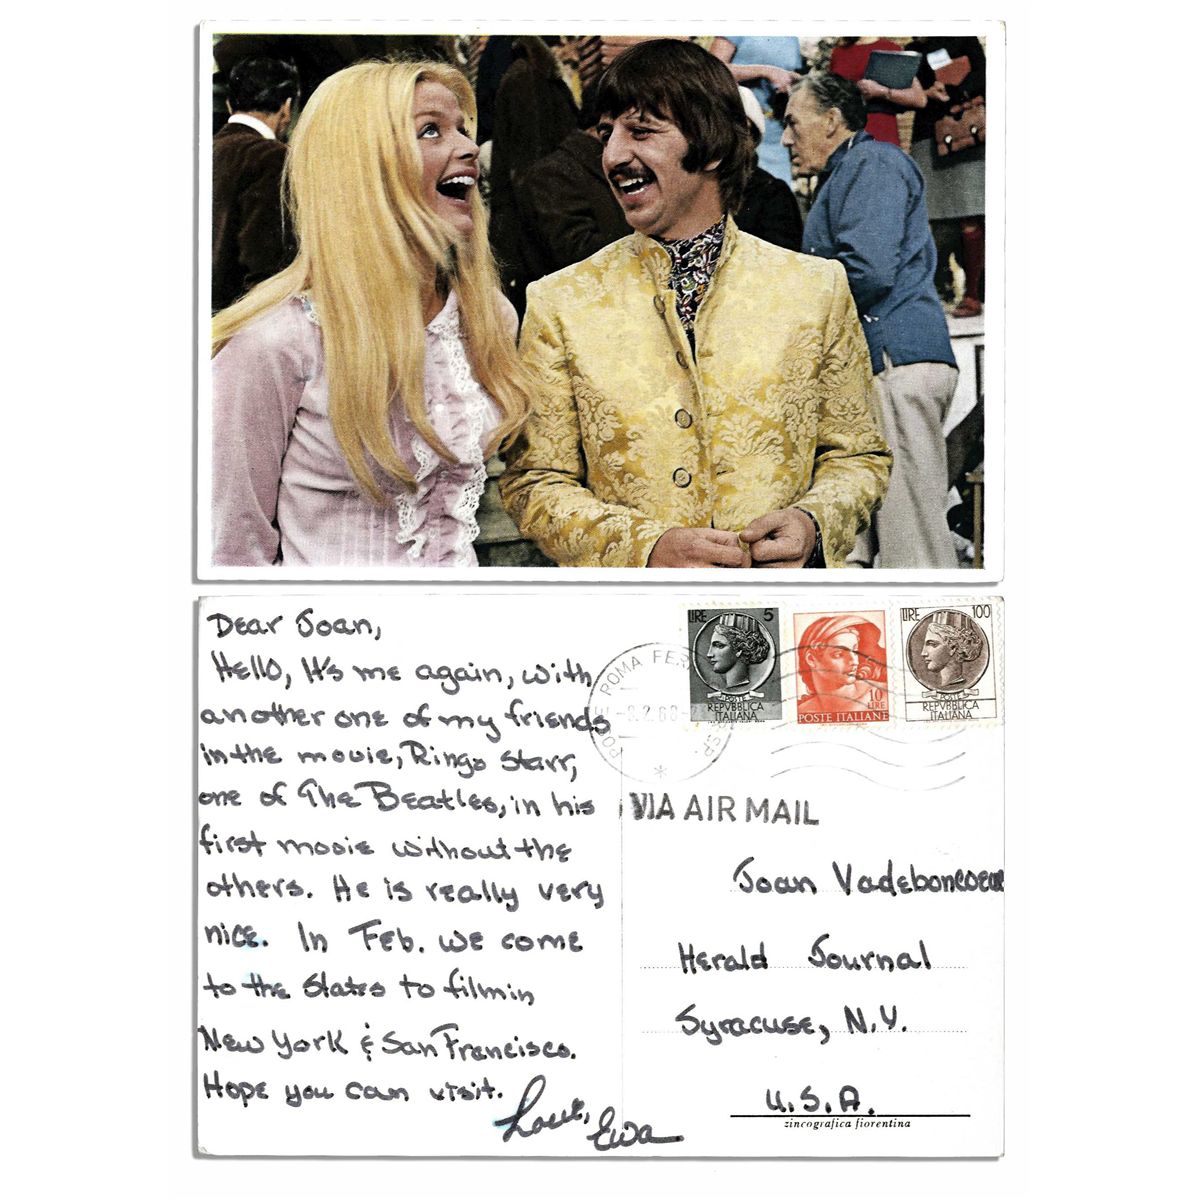 Dear Joan,
Hello, It's me again, with
another one of my friends
in the movie, Ringo Starr,
one of The Beatles, in his
first movie without the
others. He is really very
nice. In Feb. we come
to the States to film in
New York & San Francisco.
Hope you can visit.
Love, Ewa
ROMA FER
LIRE 5
POSTE
REPVBBLICA
ITALIANA
10
LIRE
POSTE ITALIANE
LIRE 100
POSTE
REPVBBLICA
ITALIANA
VIA AIR MAIL
Joan Vadeboncoeur
Herald Journal
Syracuse, N.Y.
U.S.A.
zincografica fiorentina